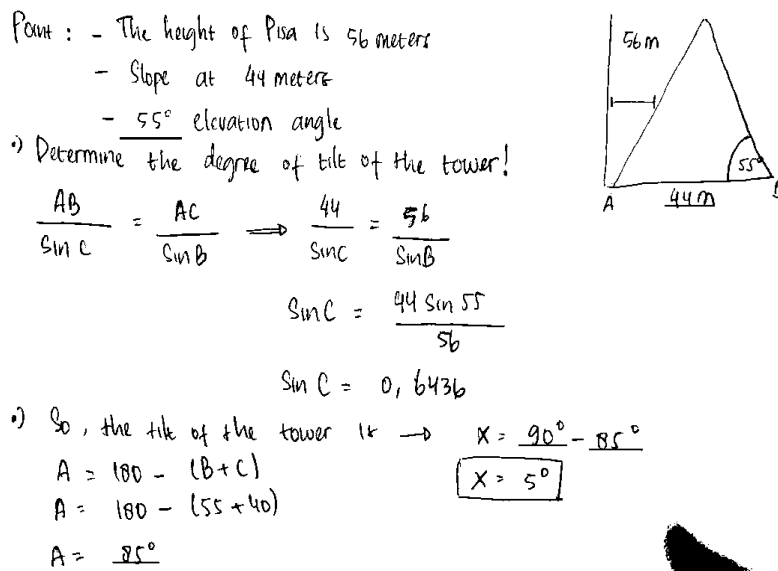 Point : - The height of Pisa is 56 meters
- Slope at 44 meters
- 55° elevation angle
•) Determine the degree of tilt of the tower!
AB / Sin C = AC / Sin B ⟹ 44 / Sin C = 56 / Sin B
Sin C = 44 Sin 55 / 56
Sin C = 0,6436
•) So, the tilt of the tower is → X = 90° - 85°
A = 180 - (B+C)
X = 5°
A = 180 - (55 + 40)
A = 85°
56 m
55°
A
44 m
B